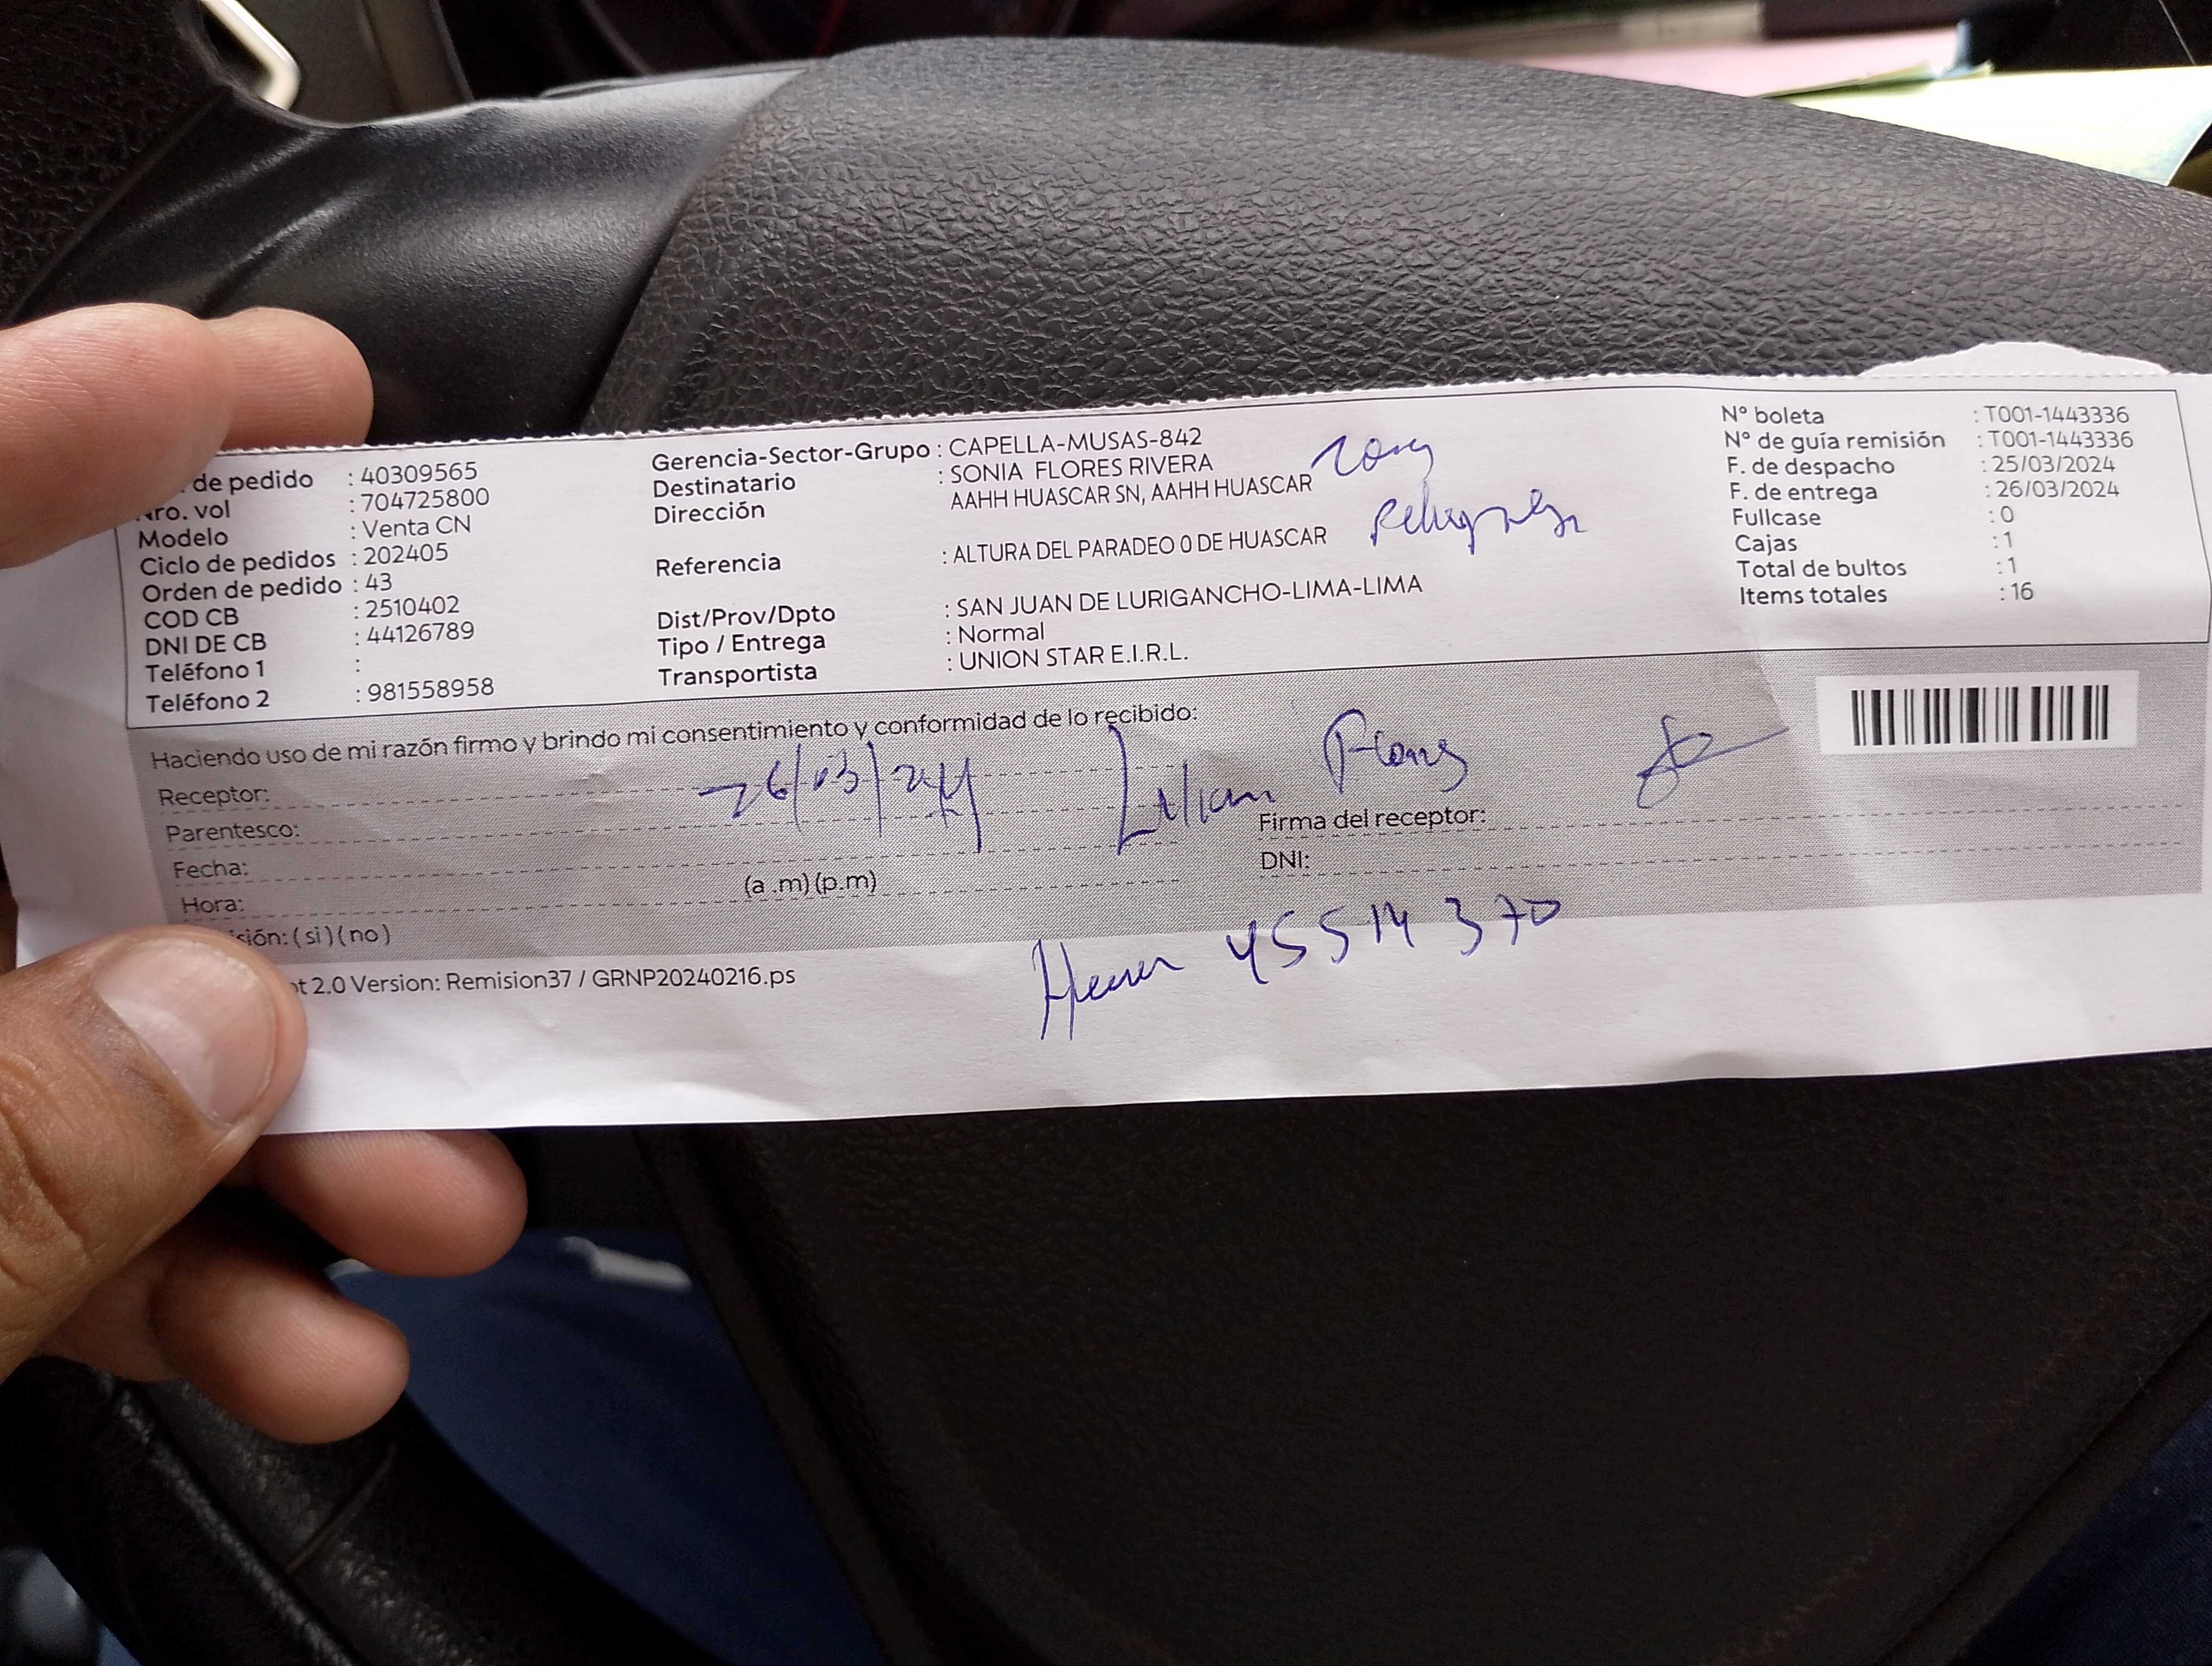 de pedido : 40309565
Nro. vol : 704725800
Modelo : Venta CN
Ciclo de pedidos : 202405
Orden de pedido : 43
COD CB : 2510402
DNI DE CB : 44126789
Teléfono 1 :
Teléfono 2 : 981558958
Gerencia-Sector-Grupo : CAPELLA-MUSAS-842
Destinatario : SONIA FLORES RIVERA
Dirección AAHH HUASCAR SN, AAHH HUASCAR
Referencia : ALTURA DEL PARADEO 0 DE HUASCAR
Dist/Prov/Dpto : SAN JUAN DE LURIGANCHO-LIMA-LIMA
Tipo / Entrega : Normal
Transportista : UNION STAR E.I.R.L.
N° boleta : T001-1443336
N° de guía remisión : T001-1443336
F. de despacho : 25/03/2024
F. de entrega : 26/03/2024
Fullcase : 0
Cajas : 1
Total de bultos : 1
Items totales : 16
Haciendo uso de mi razón firmo y brindo mi consentimiento y conformidad de lo recibido:
Receptor:
26/03/24 Lilian Flores
Parentesco:
Firma del receptor:
Fecha:
DNI:
Hora: (a .m)(p.m)
sión: (si)(no)
45514370
ot 2.0 Version: Remision37 / GRNP20240216.ps